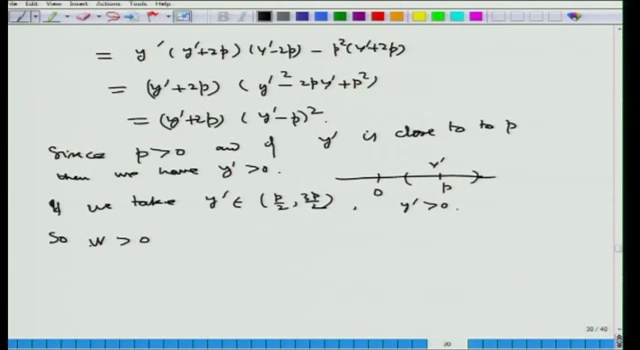 File View Insert Actions Tools Help
= y' (y'+2p) (y'-2p) - p²(y'+2p)
= (y'+2p) (y'² - 2py' + p²)
= (y'+2p) (y'-p)².
Since p>0 and if y' is close to to p
then we have y'>0.
y'
0 p
If we take y' ∈ (p/2, 3p/2), y'>0.
So W > 0
30 / 40
30